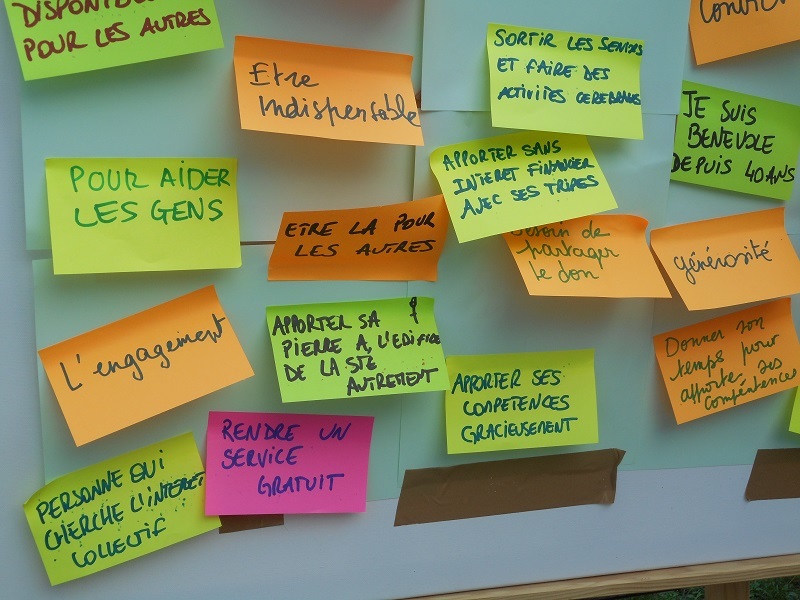 POUR LES AUTRES
Etre
Indispensable
SORTIR LES SENIORS
ET FAIRE DES
ACTIVITES CEREBRALES
JE SUIS
BENEVOLE
DEPUIS 40 ANS
POUR AIDER
LES GENS
APPORTER SANS
INTERET FINANCIER
AVEC SES TRIPES
ETRE LA POUR
LES AUTRES
Besoin de
partager
le don
générosité
L'engagement
APPORTER SA
PIERRE A L'EDIFICE
DE LA STE
AUTREMENT
APPORTER SES
COMPETENCES
GRACIEUSEMENT
Donner son
temps pour
apporter ses
compétences
RENDRE UN
SERVICE
GRATUIT
PERSONNE QUI
CHERCHE L'INTERET
COLLECTIF